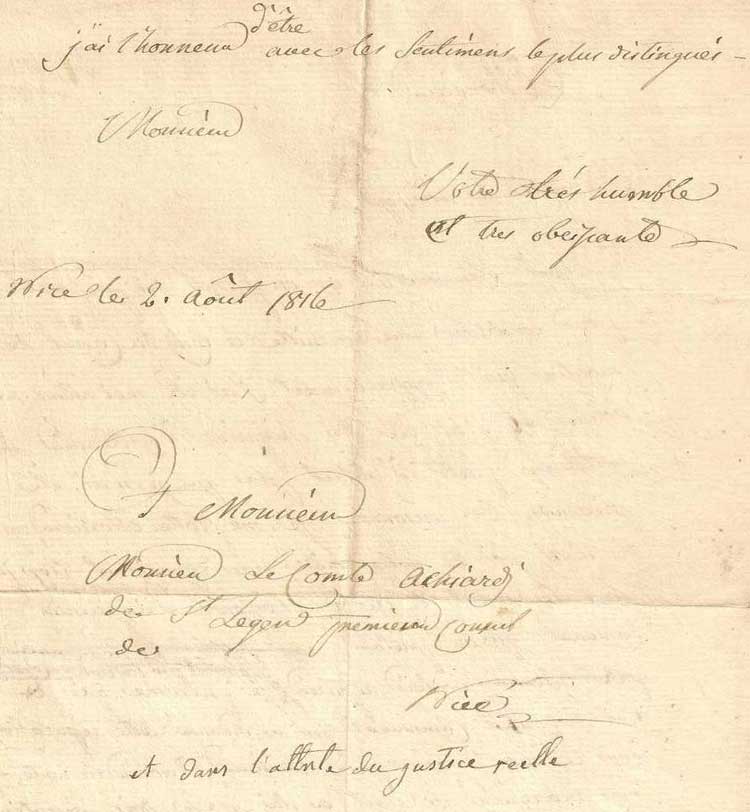 j'ai l'honneur d'être avec les sentimens le plus distingués
Monsieur
Votre très humble
et tres obeissante
Nice le 2. Août 1816
A Monsieur
Monsieur Le Comte Achiardi
de St Leger premier Consul
de
Nice
et dans l'attente du justice reelle